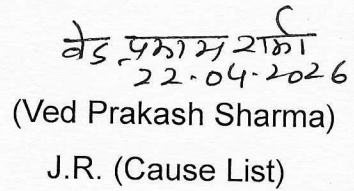 वेद प्रकाश शर्मा
22.04.2026
(Ved Prakash Sharma)
J.R. (Cause List)